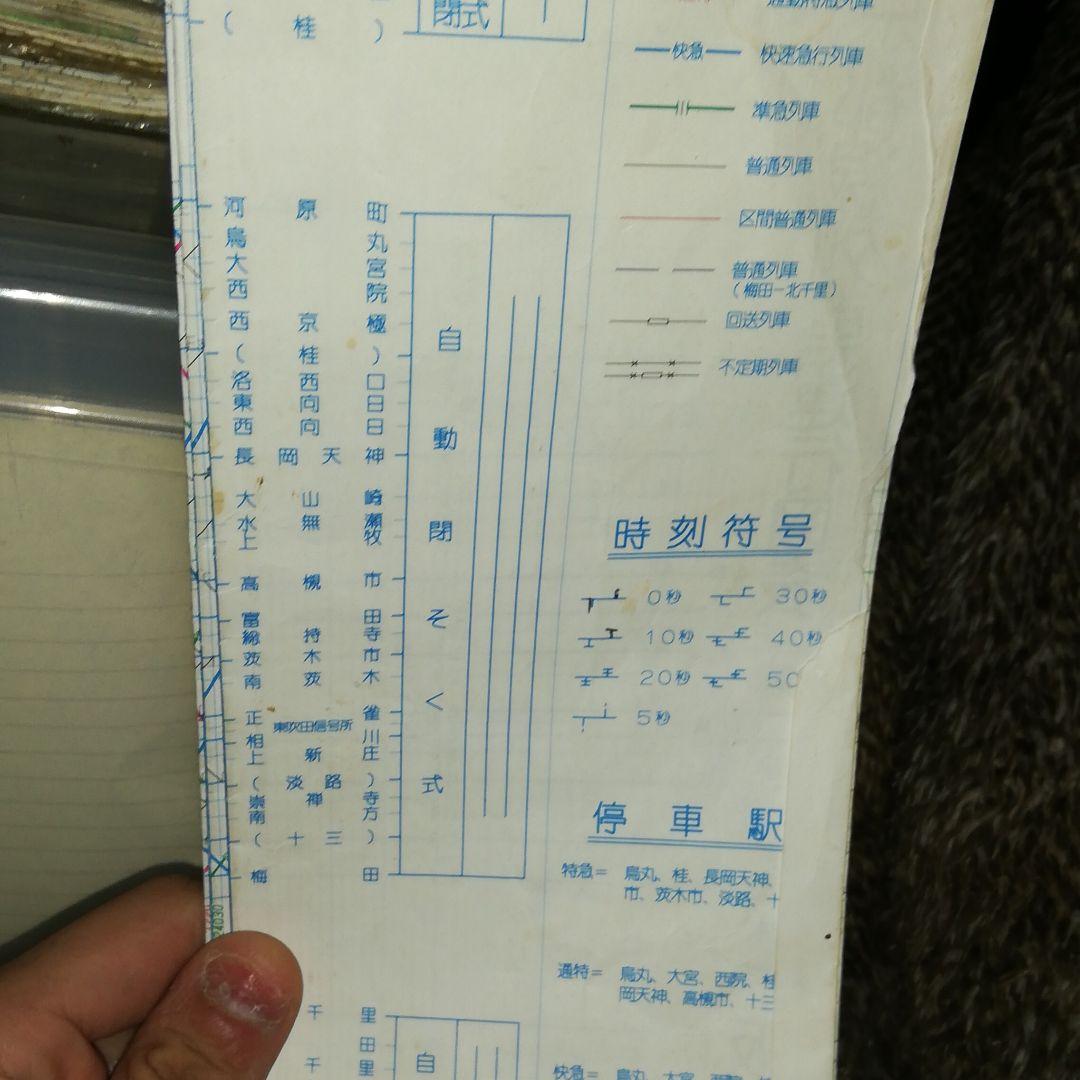 (桂)
閉式
通勤特急列車
快急 快速急行列車
準急列車
普通列車
区間普通列車
普通列車
(梅田−北千里)
回送列車
不定期列車
河原町
烏丸
大宮
西院
西京極
(桂)
洛西口
東向日
西向日
長岡天神
大山崎
水無瀬
上牧
高槻市
富田
総持寺
茨木市
南茨木
正雀
東吹田信号所
相川
上新庄
(淡路)
崇禅寺
南方
(十三)
梅田
自動閉そく式
時刻符号
0秒 30秒
10秒 40秒
20秒 50
5秒
停車駅
特急= 烏丸、桂、長岡天神、
市、茨木市、淡路、十
通特= 烏丸、大宮、西院、桂
岡天神、高槻市、十三
快急= 烏丸、大宮、西院、
24030
千里
田
千里
自